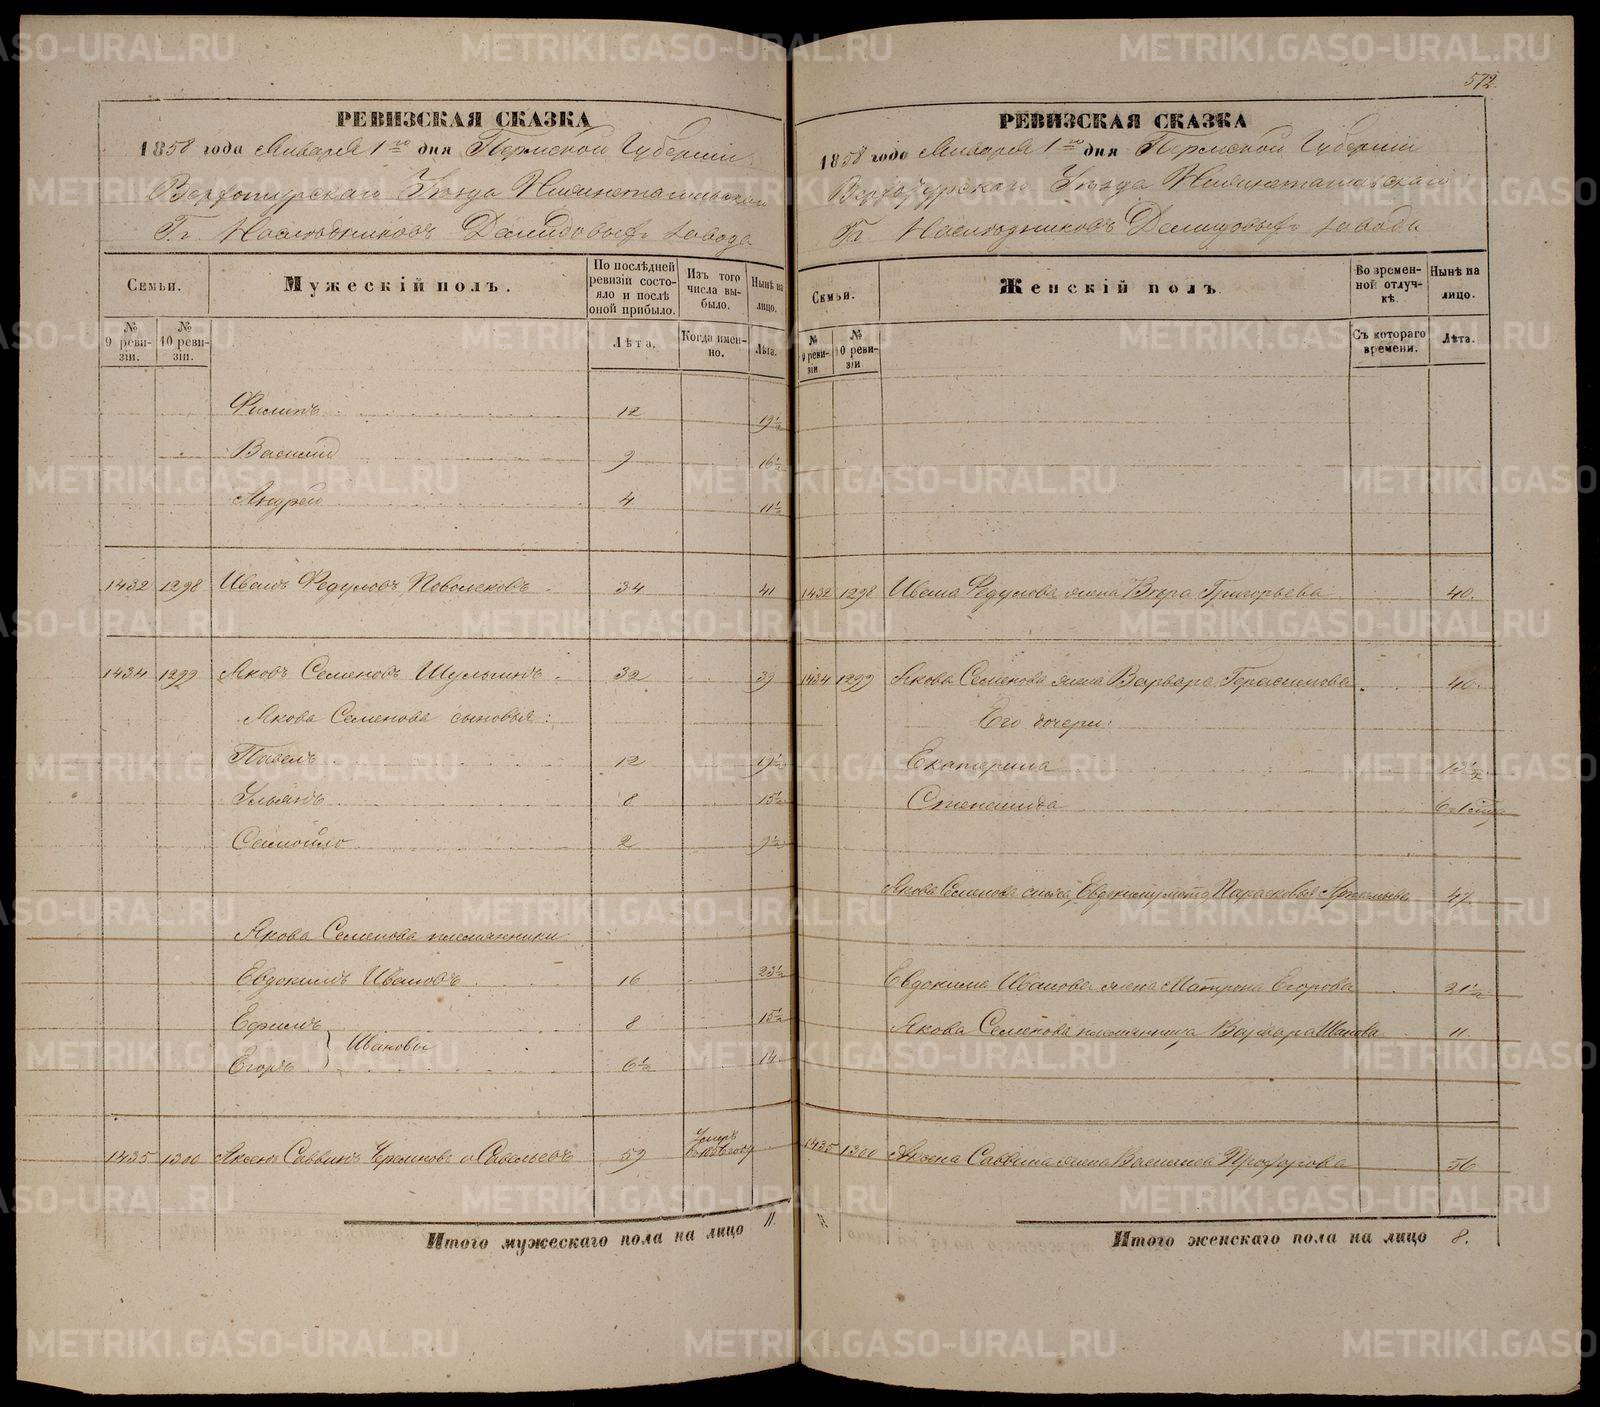 РЕВИЗСКАЯ СКАЗКА
1858 года Января 1го дня Пермской Губернии
Верхотурскаго Уѣзда Нижнетагильскаго
Гг. Наслѣдниковъ Демидовыхъ завода
Семьи.
Мужескій полъ.
По послѣдней ревизіи состояло и послѣ оной прибыло.
Изъ того числа выбыло.
Нынѣ на лицо.
№ 9 ревизіи.
№ 10 ревизіи.
Лѣта.
Когда именно.
Лѣта.
Филипъ 12 19½
Василій 9 16½
Андрей 4 11½
1432 1298 Иванъ Федуловъ 34 41
1434 1299 Яковъ Семеновъ Шульгинъ 32 39
Якова Семенова сыновья:
Павелъ 12 19½
Ульянъ 8 15½
Самойло 2 9½
Якова Семенова племянники
Евдокимъ Ивановъ 16 23½
Ефимъ 8 15½
Ивановы
Егоръ 6½ 14
1435 1300 Аксенъ Саввинъ 59 Умеръ
Итого мужескаго пола на лицо 11.
572
РЕВИЗСКАЯ СКАЗКА
1858 года Января 1го дня Пермской Губерніи
Верхотурскаго Уѣзда Нижнетагильскаго
Гг. Наслѣдниковъ Демидовыхъ завода
Семьи.
Женскій полъ.
Во временной отлучкѣ.
Нынѣ на лицо.
№ 9 ревизіи
№ 10 ревизіи
Съ котораго времени.
Лѣта.
1432 1298 Ивана Федулова жена Вѣра Григорьева 40.
1434 1299 Якова Семенова жена Варвара Герасимова 40.
Его дочери:
Екатерина 13½
Степанида
Якова Семенова сноха, Евдокиму мать Парасковья 47.
Евдокима Иванова жена Матрена Егорова 21½
Якова Семенова племянница Варвара Иванова 11
1435 1300 Аксена Саввина жена Василиса Прохорова 56
Итого женскаго пола на лицо 8.
METRIKI.GASO-URAL.RU